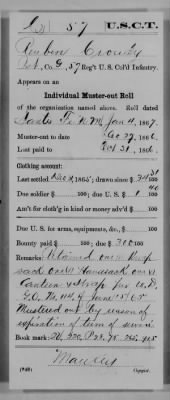 57 U.S.C.T.
Reuben Crowley
Co. G, 57 Reg't U. S. Col'd Infantry.
Appears on an
Individual Muster-out Roll
of the organization named above. Roll dated
Santa Fe N.M. Jan 4, 1867.
Muster-out to date 1866.
Last paid to Oct 31, 1866.
Clothing account:
Last settled 1865; drawn since $
Due soldier $ 100; due U. S. $ 100
Am't for cloth'g in kind or money adv'd $ 100
Due U. S. for arms, equipments, &c., $ 100
Bounty paid $ 100; due $ 300 100
Remarks: Retained one knap
sack one Haversack one
Canteen & strap for
G.O. No. 114 June 15/65
Mustered out by reason of
expiration of term of service
Book mark:
(940) Copyist.